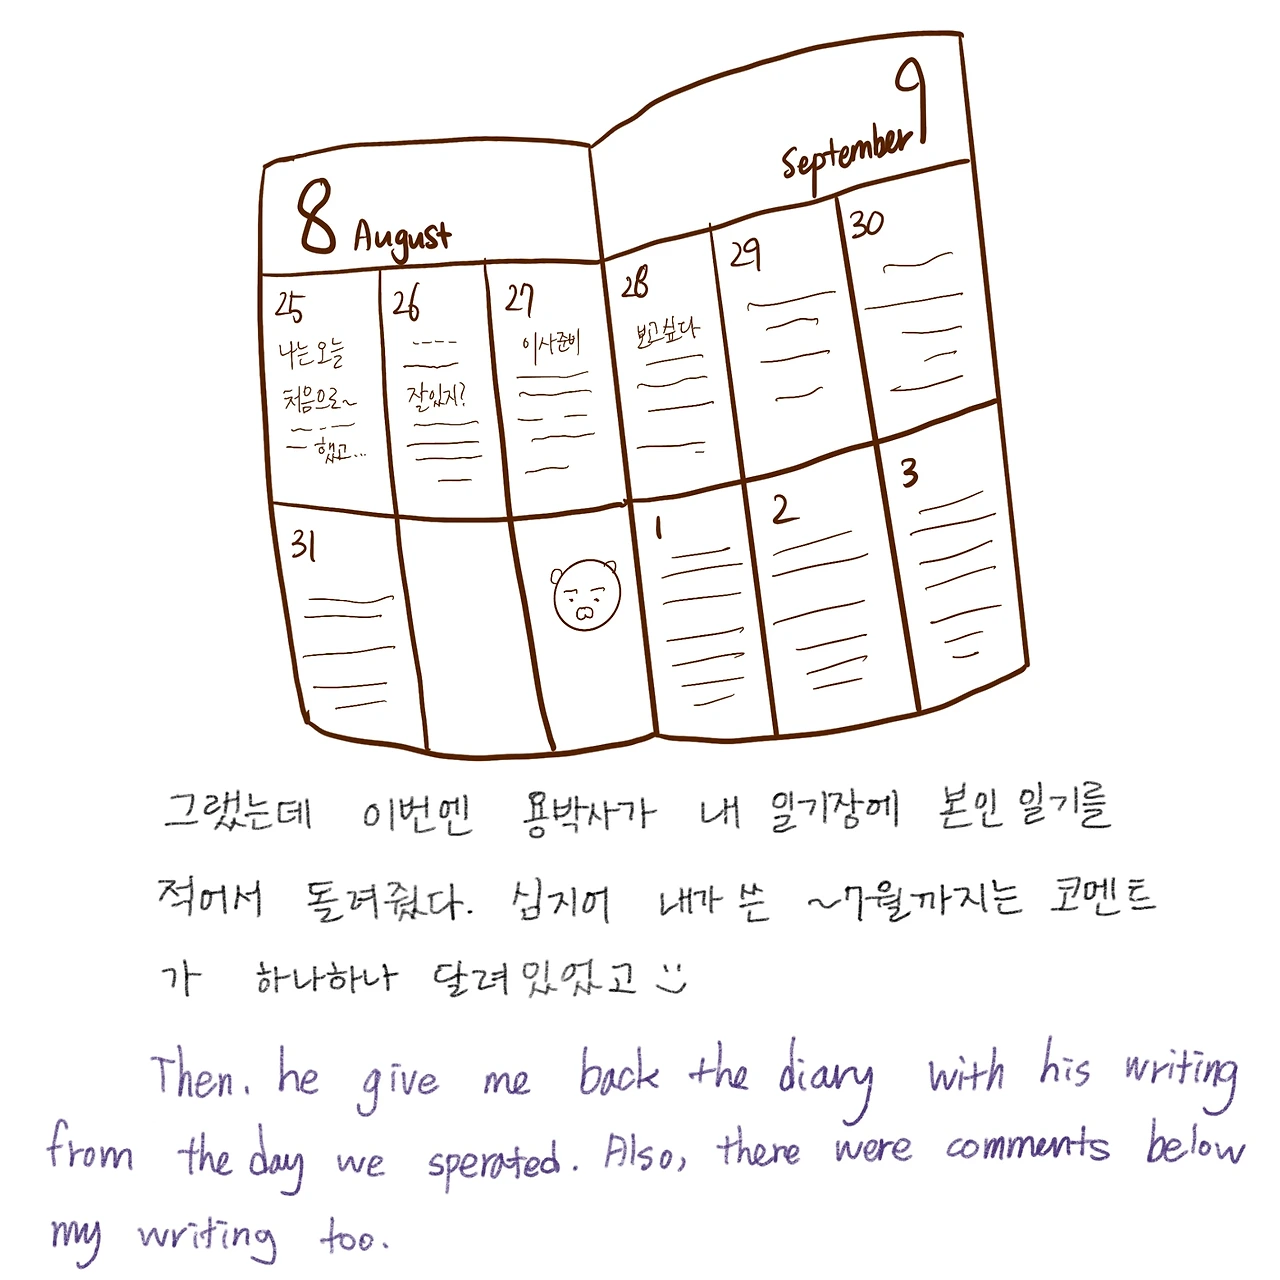 8 August
9
September
25
나는 오늘
처음으로~
했고...
26
잘있지?
27
이사준비
28
보고싶다
29
30
31
1
2
3
그랬는데 이번엔 용박사가 내 일기장에 본인 일기를
적어서 돌려줬다. 심지어 내가 쓴 ~7월까지는 코멘트
가 하나하나 달려있었고 :)
Then. he give me back the diary with his writing
from the day we sperated. Also, there were comments below
my writing too.